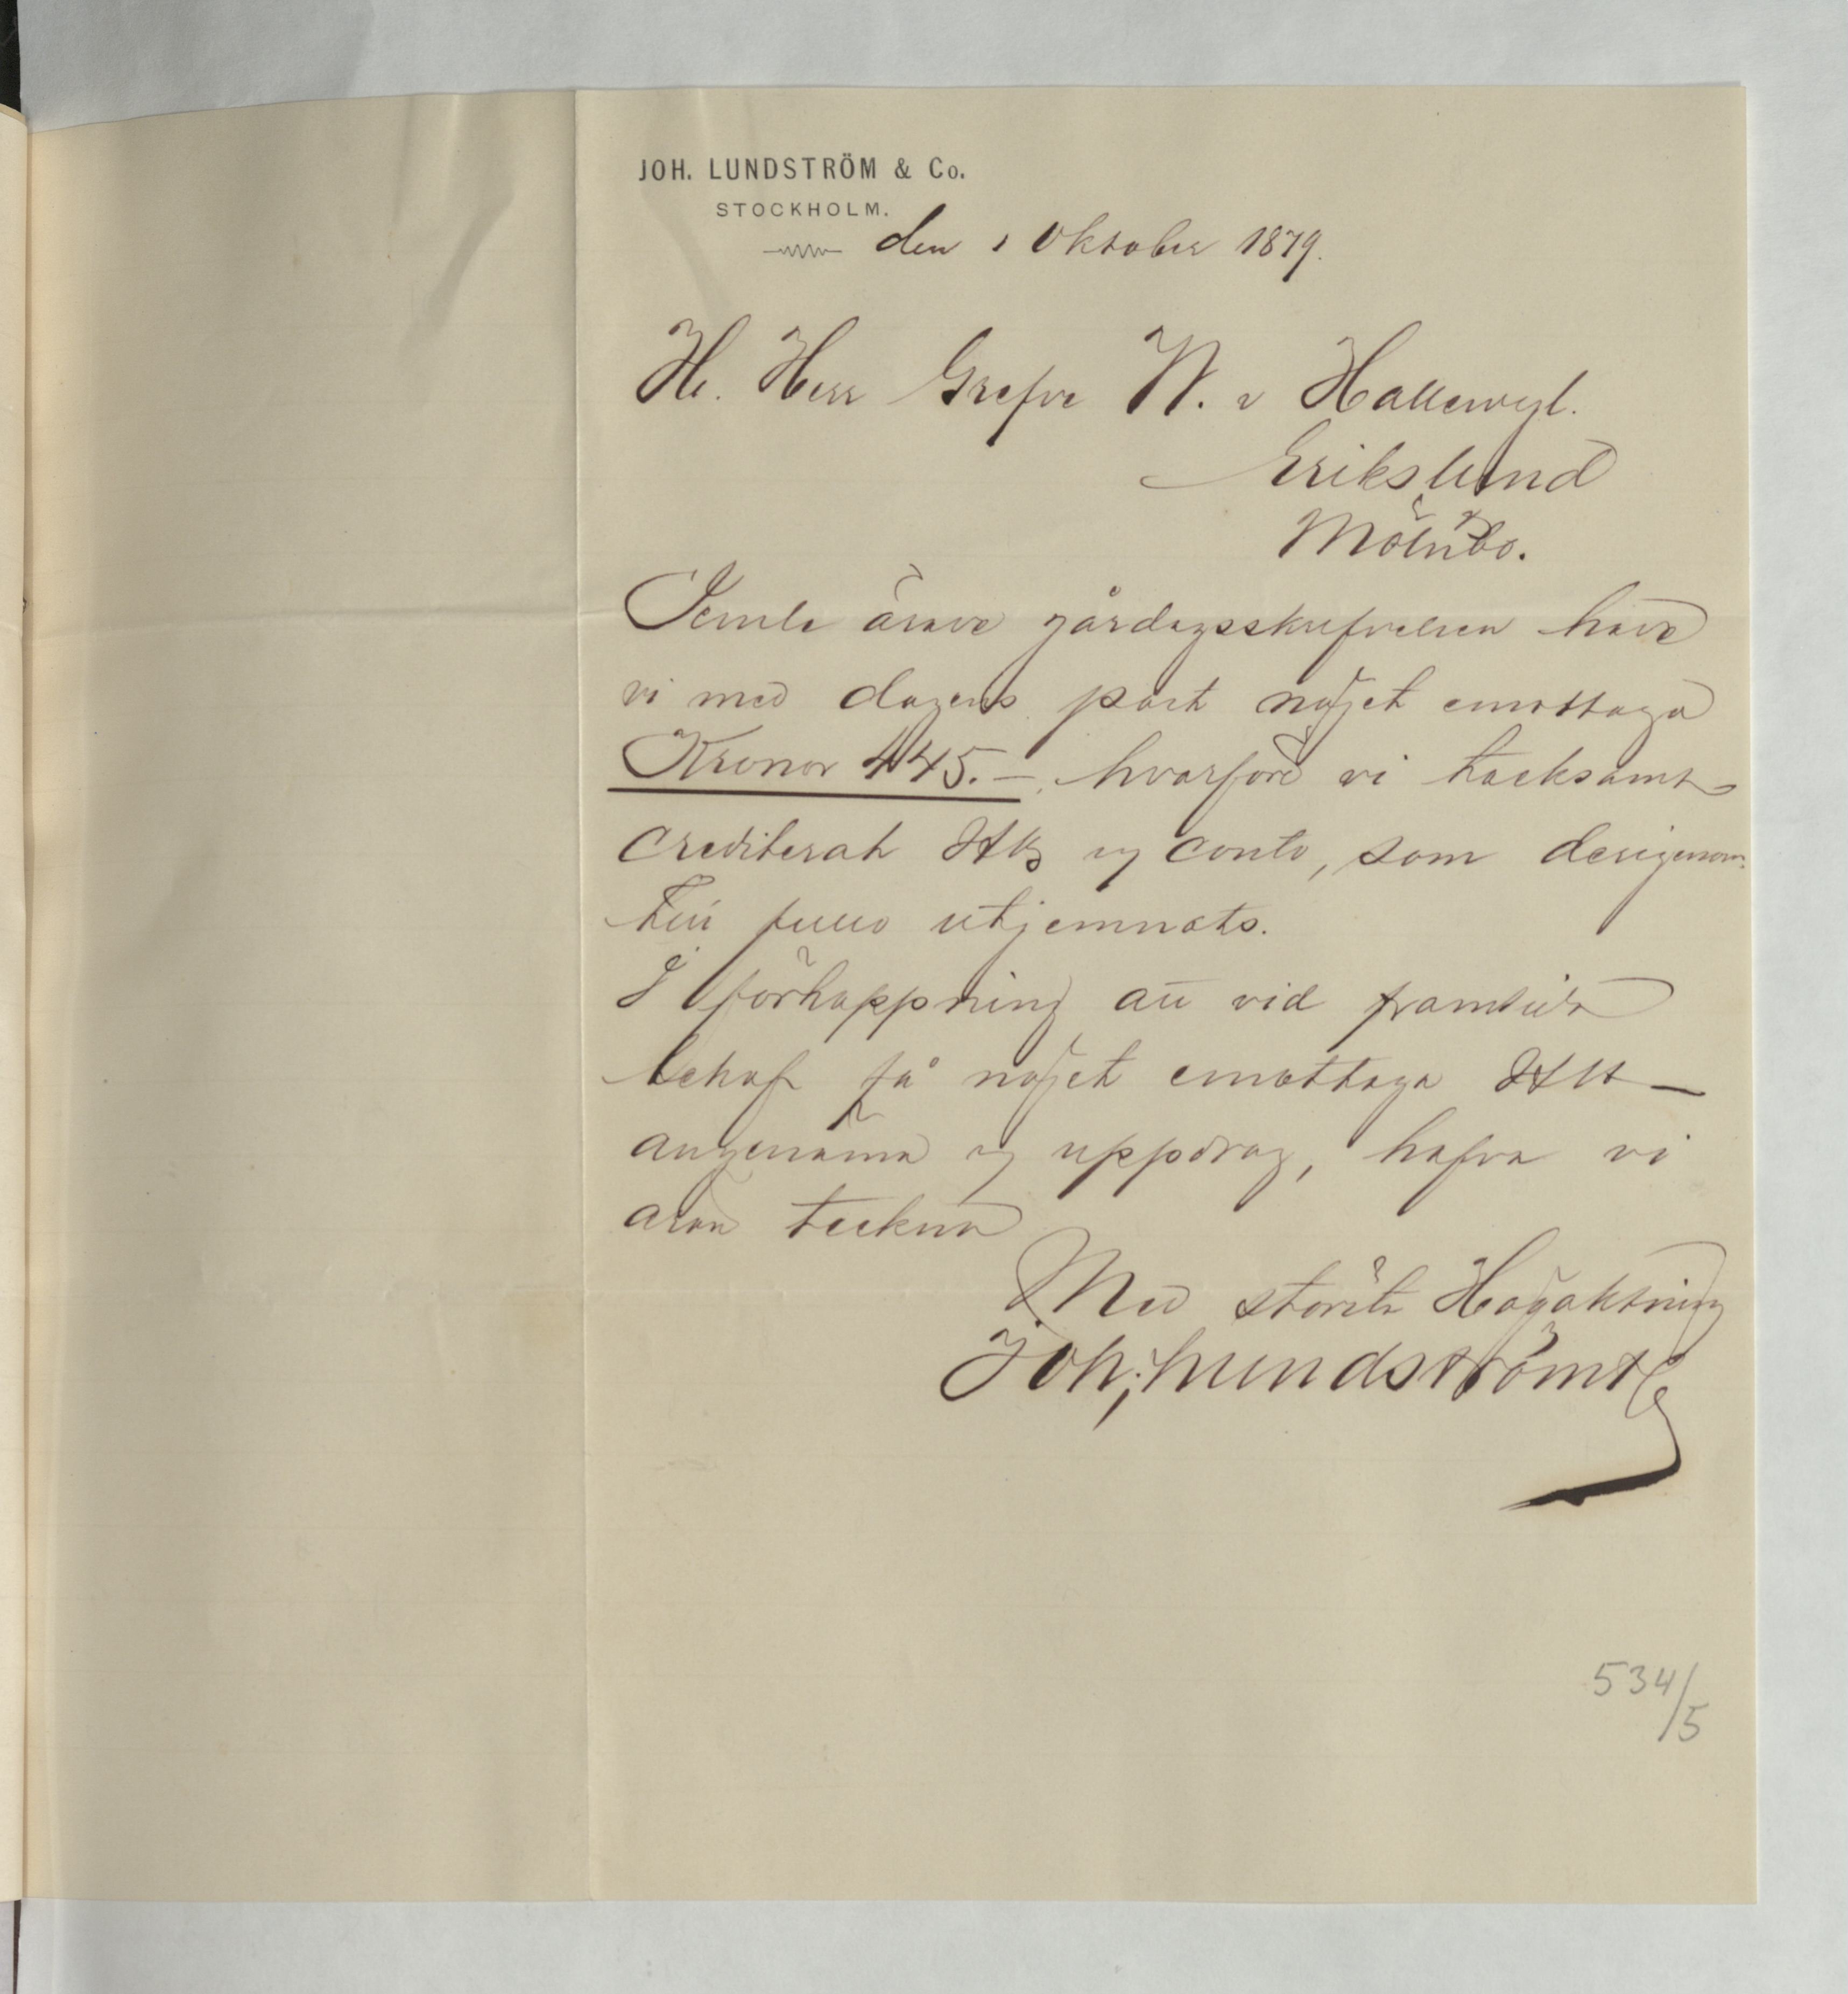 JOH. LUNDSTRÖM & Co.
STOCKHOLM.
den 1 Oktober 1879.
Hr. Herr Grefve W. v Hallewyl.
Erikslund
Mölnbo.
Jemte ärade gårdagsskrifvelsen hava
vi med dagens post nöjet emottaga
Kronor 445.– hvarföre vi tacksamt
crediterat conto, som derigenom
till fullo utjemnats.
I förhoppning att vid framtida
behof få nöjet emottaga
angenäma uppdrag, hafva vi
äran teckna
Med största Högaktning
Joh; Lundström & Co
534/5